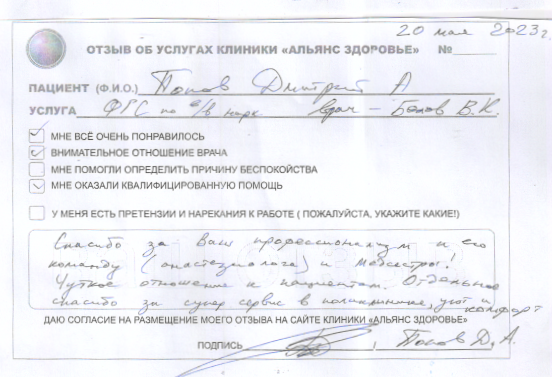 20 мая 2023 г.
ОТЗЫВ ОБ УСЛУГАХ КЛИНИКИ «АЛЬЯНС ЗДОРОВЬЕ» №
ПАЦИЕНТ (Ф.И.О.) Попов Дмитрий А
УСЛУГА ФГС по в/в нарк врач - Белов В.К.
МНЕ ВСЁ ОЧЕНЬ ПОНРАВИЛОСЬ
ВНИМАТЕЛЬНОЕ ОТНОШЕНИЕ ВРАЧА
МНЕ ПОМОГЛИ ОПРЕДЕЛИТЬ ПРИЧИНУ БЕСПОКОЙСТВА
МНЕ ОКАЗАЛИ КВАЛИФИЦИРОВАННУЮ ПОМОЩЬ
У МЕНЯ ЕСТЬ ПРЕТЕНЗИИ И НАРЕКАНИЯ К РАБОТЕ ( ПОЖАЛУЙСТА, УКАЖИТЕ КАКИЕ!)
Спасибо за Ваш профессионализм и его
команду (анастезиолога) и медсестры!
Чуткое отношение к пациентам. Отдельное
спасибо за супер сервис в поликлинике, уют и
комфорт
ДАЮ СОГЛАСИЕ НА РАЗМЕЩЕНИЕ МОЕГО ОТЗЫВА НА САЙТЕ КЛИНИКИ «АЛЬЯНС ЗДОРОВЬЕ»
ПОДПИСЬ , Попов Д, А.